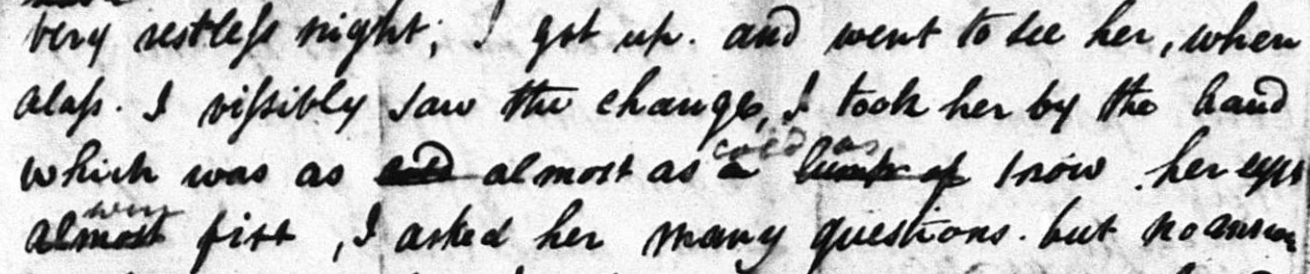 very restless night; I got up. and went to see her, when
alass. I vissibly saw the change, I took her by the hand
which was as cold almost as a cold as lump of snow . her eyes
almost very fixt , I asked her many questions. but no answer